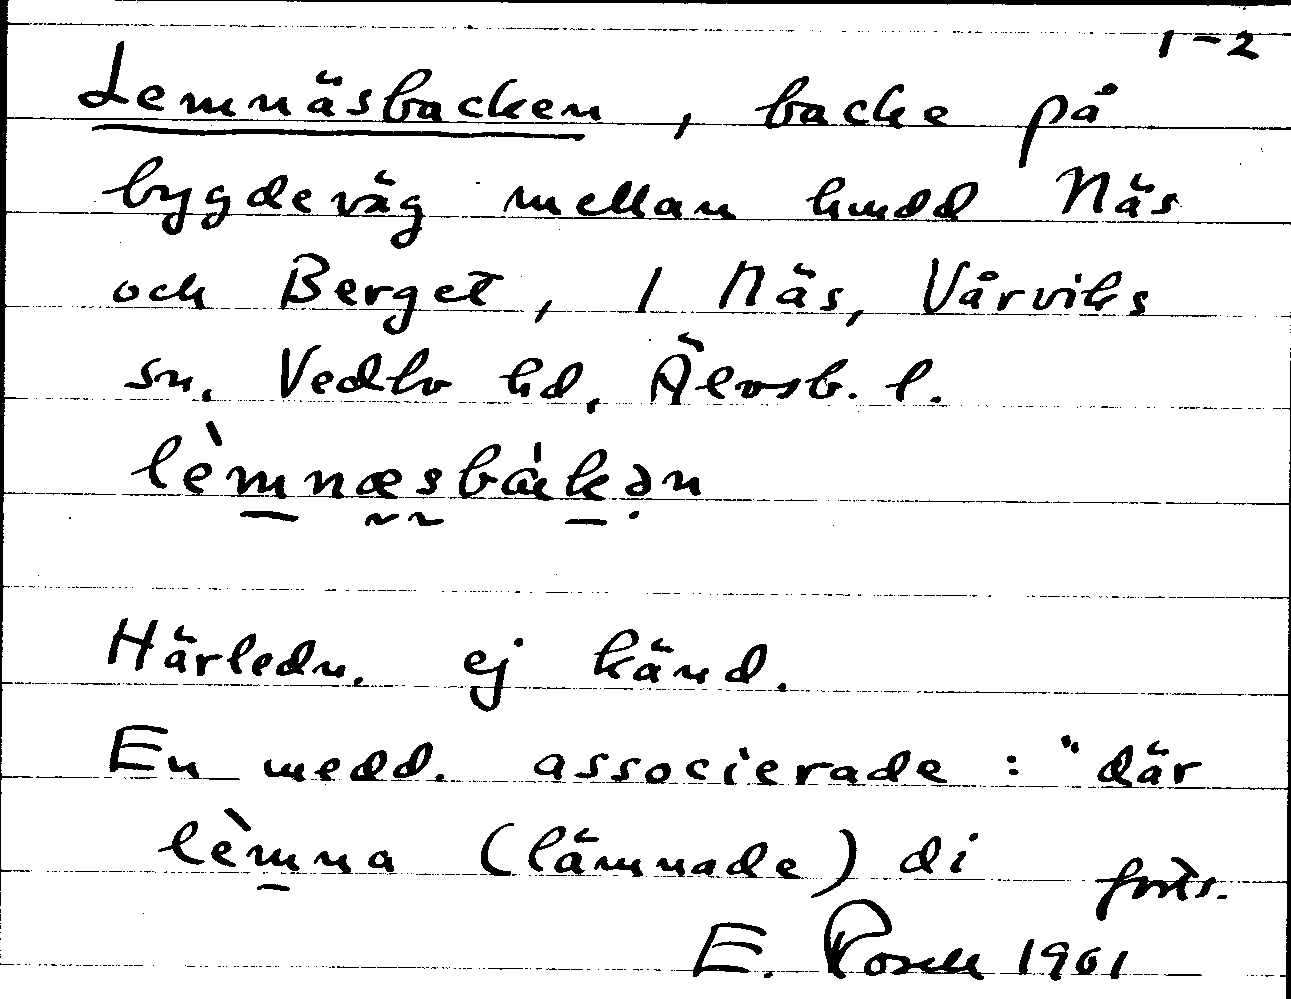 1-2
Lemnäsbacken, backe på
bygdeväg mellan hmdd Näs
och Berget, 1 Näs, Vårviks
sn. Vedbo hd, Älvsb. l.
lèmnæsbàkən
Härledn. ej känd.
En medd. associerade: "där
lèmna (lämnade) di
forts.
E. 1961